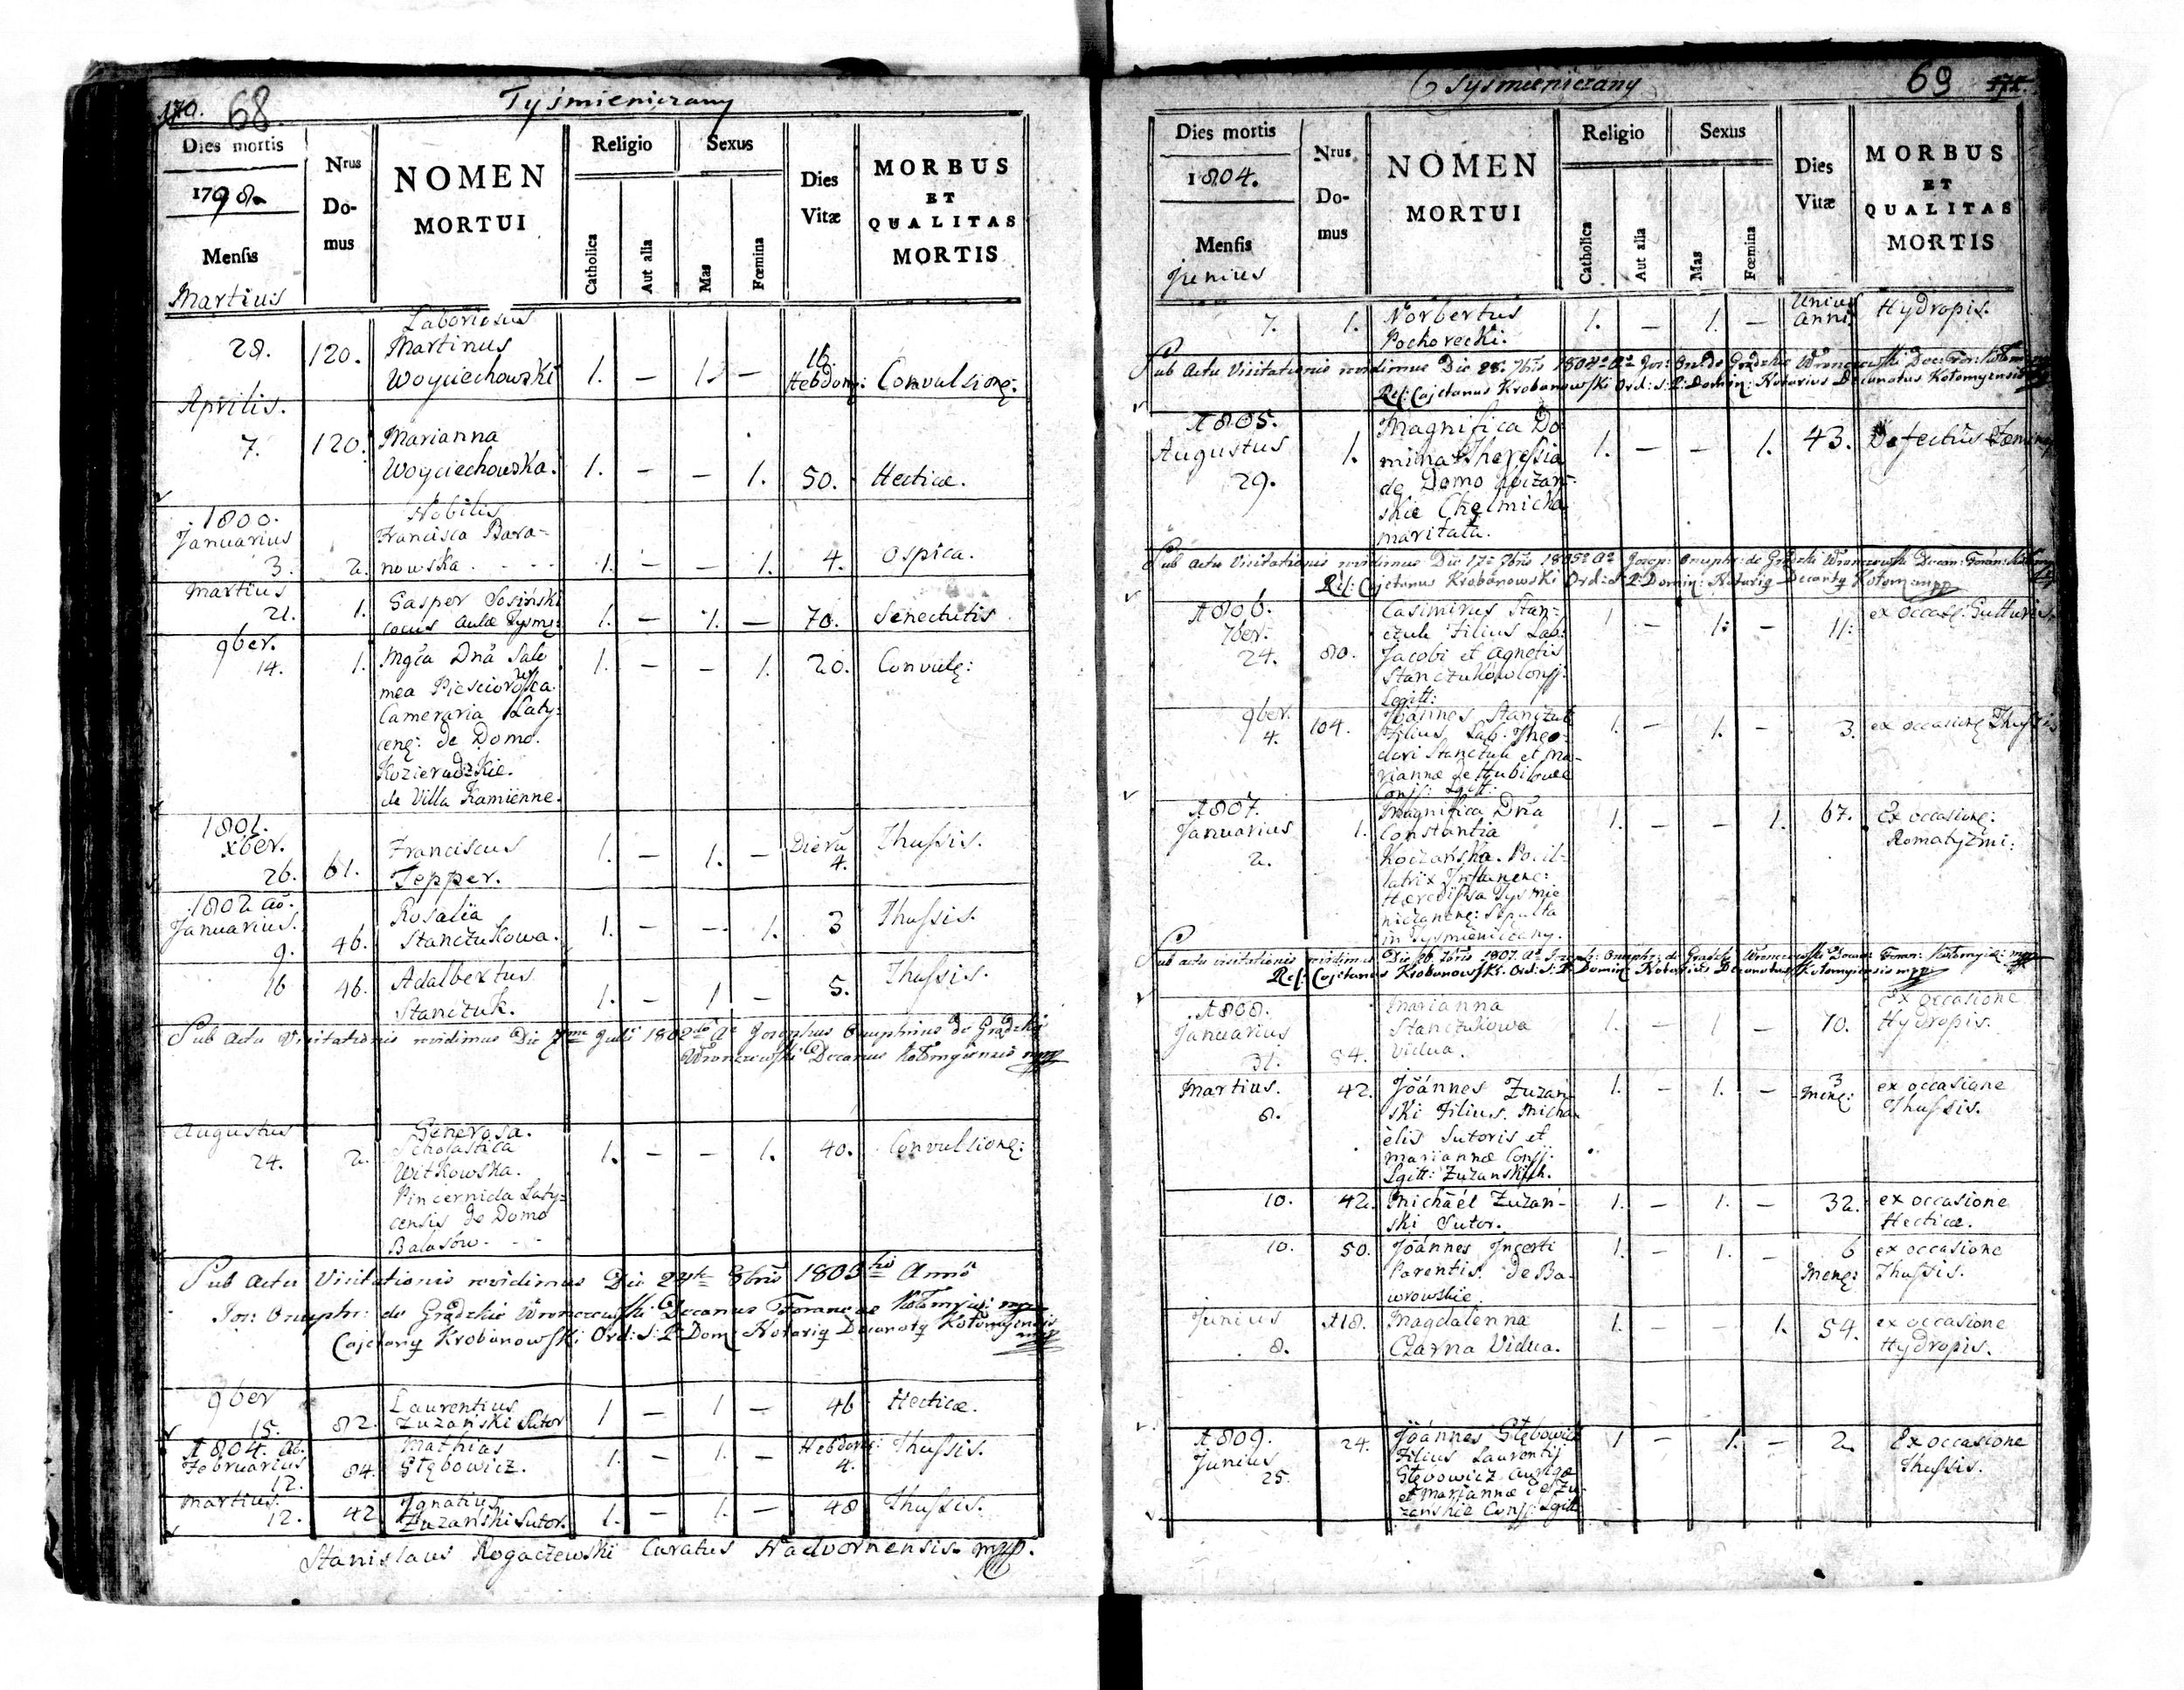 170. 68. Tyśmieniczany
Dies mortis
1798.
Mensis
Martius
Nrus Domus
NOMEN
MORTUI
Religio
Catholica
Aut alia
Sexus
Mas
Fœmina
Dies
Vitæ
MORBUS
ET
QUALITAS
MORTIS
28. 120. Laboriosus
Martinus
Woyciechowski 1. — 1. — 16. Hebdom: Convulsione:
Aprilis.
7. 120. Marianna
Woyciechowska. 1. — — 1. 50. Hecticæ.
1800.
Januarius
3. 2. Nobilis
Francisca Bara-
nowska 1. — — 1. 4. Ospica.
Martius
21. 1. Gasper Sosiński
cocus Aulæ Tysme: 1. — 1. — 70. Senectutis
9ber.
14. 1. Mgca Dnã Salo
mea
Cameraria Laty:
cenę: de Domo.
Kozieradzkie.
de Villa Kamienne. 1. — — 1. 20. Convulę:
1801.
xber.
26. 61. Franciscus
Tepper. 1. — 1. — Dierũ
4. Thussis.
1802 aõ.
Januarius.
9. 46. Rosalia
Stanczukowa. 1. — — 1. 3 Thussis.
16 46. Adalbertus
Stanczuk. 1. — 1 — 5. Thussis.
Sub Actu Visitationis revidimus Die 7ma Julii 1802do Ao Josephus Onuphrius de Grądzkie
Wronczewski Decanus Kołomyiensis mpp
Augustus
24. 2. Generosa.
Scholastica
Witkowska.
Pincernida Laty:
censis de Domo
Balasow. 1. — — 1. 40. Convulsionę:
Sub Actu Visitationis revidimus Die 24ta 8bris 1803tio Anno
Jos: Onuphr: de Grądzkie Wronczewski Decanus Foraneus Kołomyię: mpp
Cajetanus Krobanowski Ord: S: P: Dom: Notarius Decanatus Kołomyensis
mpp
9ber
15. 82. Laurentius
Zuzański Sutor 1 — 1 — 46 Hecticæ.
1804. ao.
Februarius
12. 84. Mathias
Głębowicz. 1. — 1. — Hebdom:
4. Thussis.
Martius.
12. 42 Ignatius
Zuzański Sutor. 1. — 1. — 48 Thussis.
Stanislaus Rogaczewski Curatus Nadvornensis mpp.
Tysmieniczany 69 171.
Dies mortis
1804.
Mensis
Junius
Nrus Domus
NOMEN
MORTUI
Religio
Catholica
Aut alia
Sexus
Mas
Fœmina
Dies
Vitæ
MORBUS
ET
QUALITAS
MORTIS
7. 1. Norbertus
Pochorecki. 1. — 1. — Unius
Anni. Hydropis.
Sub Actu Visitationis revidimus Die 28. 7bris 1804o Ao Jos: Onu: de Grądzkie Wronczewski Dec: For:
Ref: Cajetanus Krobanowski Ord: S: P: Domin: Notarius Decanatus Kołomyensis
1805.
Augustus
29. 1. Magnifica Do
mina Theressia
de Domo
skie Chełmicka
maritata. 1. — — 1. 43. Defectus
Sub Actu Visitationis revidimus Die 17a 7bris 1805o Ao Joseph: Onuphr: de Grądzkie Wronczewski Decan: Foran:
Ref: Cajetanus Krobanowski Ord: S: P: Domin: Notarius Decanatus Kołom: mpp
1806.
7ber.
24. 80. Casimirus Stan-
czuk Filius Lab:
Jacobi et Agnetis
Stanczukow Conjj:
Legitt: 1 — 1: — 11: ex occasę: Gutturis.
9ber.
4. 104. Joannes Stanczuk
Filius Lab: Theo-
dori Stanczuk et Ma-
riannæ de
Conjj: Lgitt: 1. — 1. — 3. ex occasione Thussis
1807.
Januarius
2. 1. Magnifica Dnã
Constantia
Koczańska. Pocil-
latrix
Hæredissa Tysmie
niczanenę: Sepulta
in Tysmieniczany. 1. — — 1. 67. Ex occasionę:
Romatyzmi:
Sub actu visitationis revidimus Die 26. 7bris 1807. Ao Joseph: Onuphr: de Grądzkie Wronczewski Decan: Foran: Kołomyię: mpp
Ref: Cajetanus Krobanowski. Ord: S: P: Domin: Notarius Decanatus Kołomyiensis mpp
1808.
Januarius
31. 54. Marianna
Stanczukowa
Vidua. 1. — 1 — 70. Ex occasione
Hydropis.
Martius.
8. 42. Joannes Zuzan-
ski Filius. Micha-
ëlis Sutoris et
Mariannæ Conjj.
Lgitt: Zuzanskich. 1. — 1. — 3
Menę: ex occasione
Thussis.
10. 42. Michaël Zuzań-
ski Sutor. 1. — 1. — 32. ex occasione
Hecticæ.
10. 50. Joannes Incerti
Parentis. de Ba-
worowskie. 1. — 1. — 6
Menę: ex occasione
Thussis.
Junius
8. 118. Magdalenna
Czarna Vidua. 1. — — 1. 54. ex occasione
Hydropis.
1809.
Junius
25. 24. Joannes Głębowicz
Filius Laurentij
Głębowicz Aurigæ
et Mariannæ de Zu-
zanskie Conjj: Lgitt: 1 — 1. — 2. Ex occasione
Thussis.